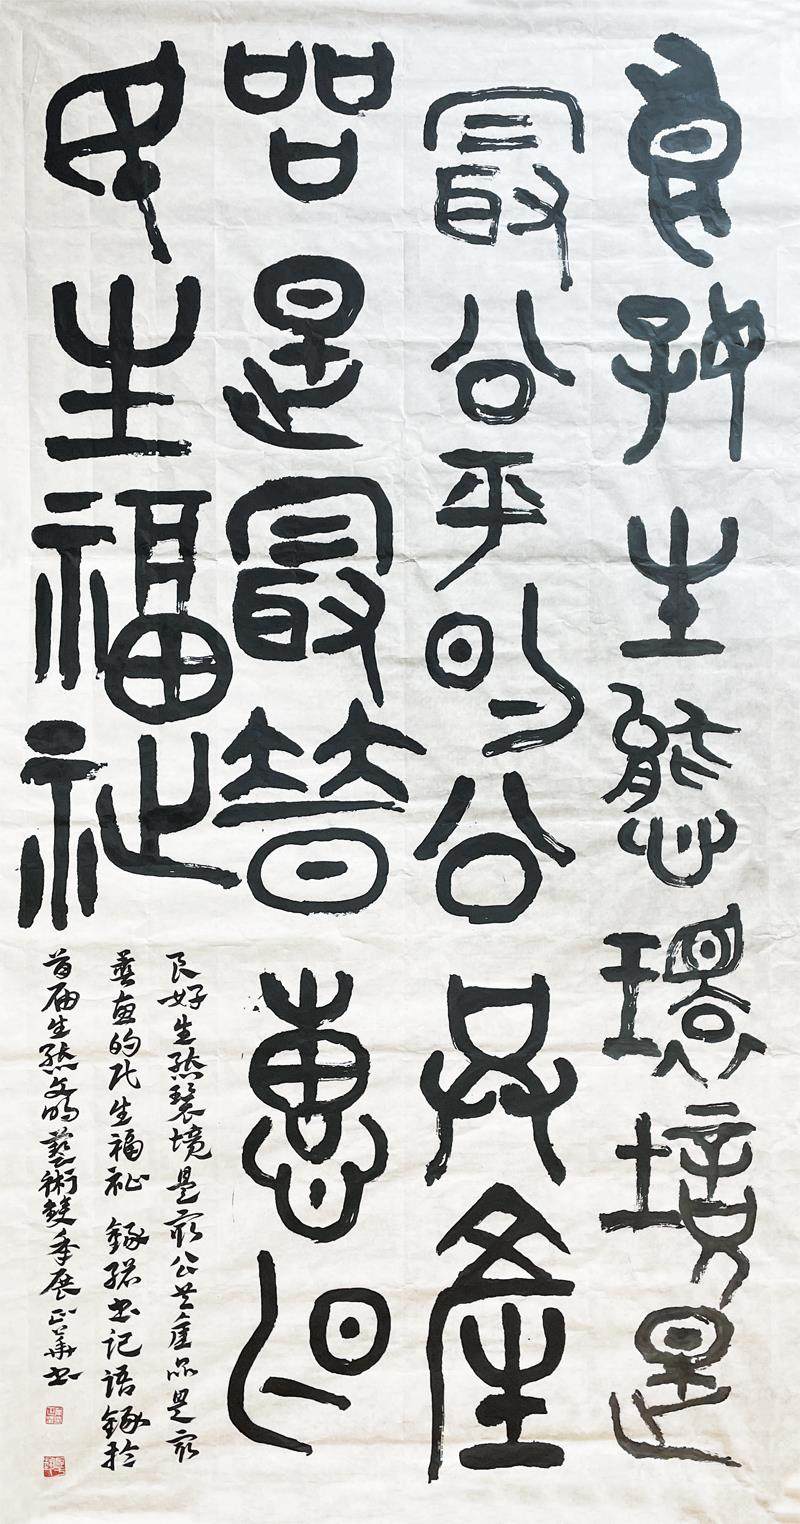 良好生態環境是
最公平的公共產
品是最普惠的
民生福祉
良好生態環境是最公共產品是最
普惠的民生福祉 錄總书记语錄於
首届生態文明藝術雙年展 正華书